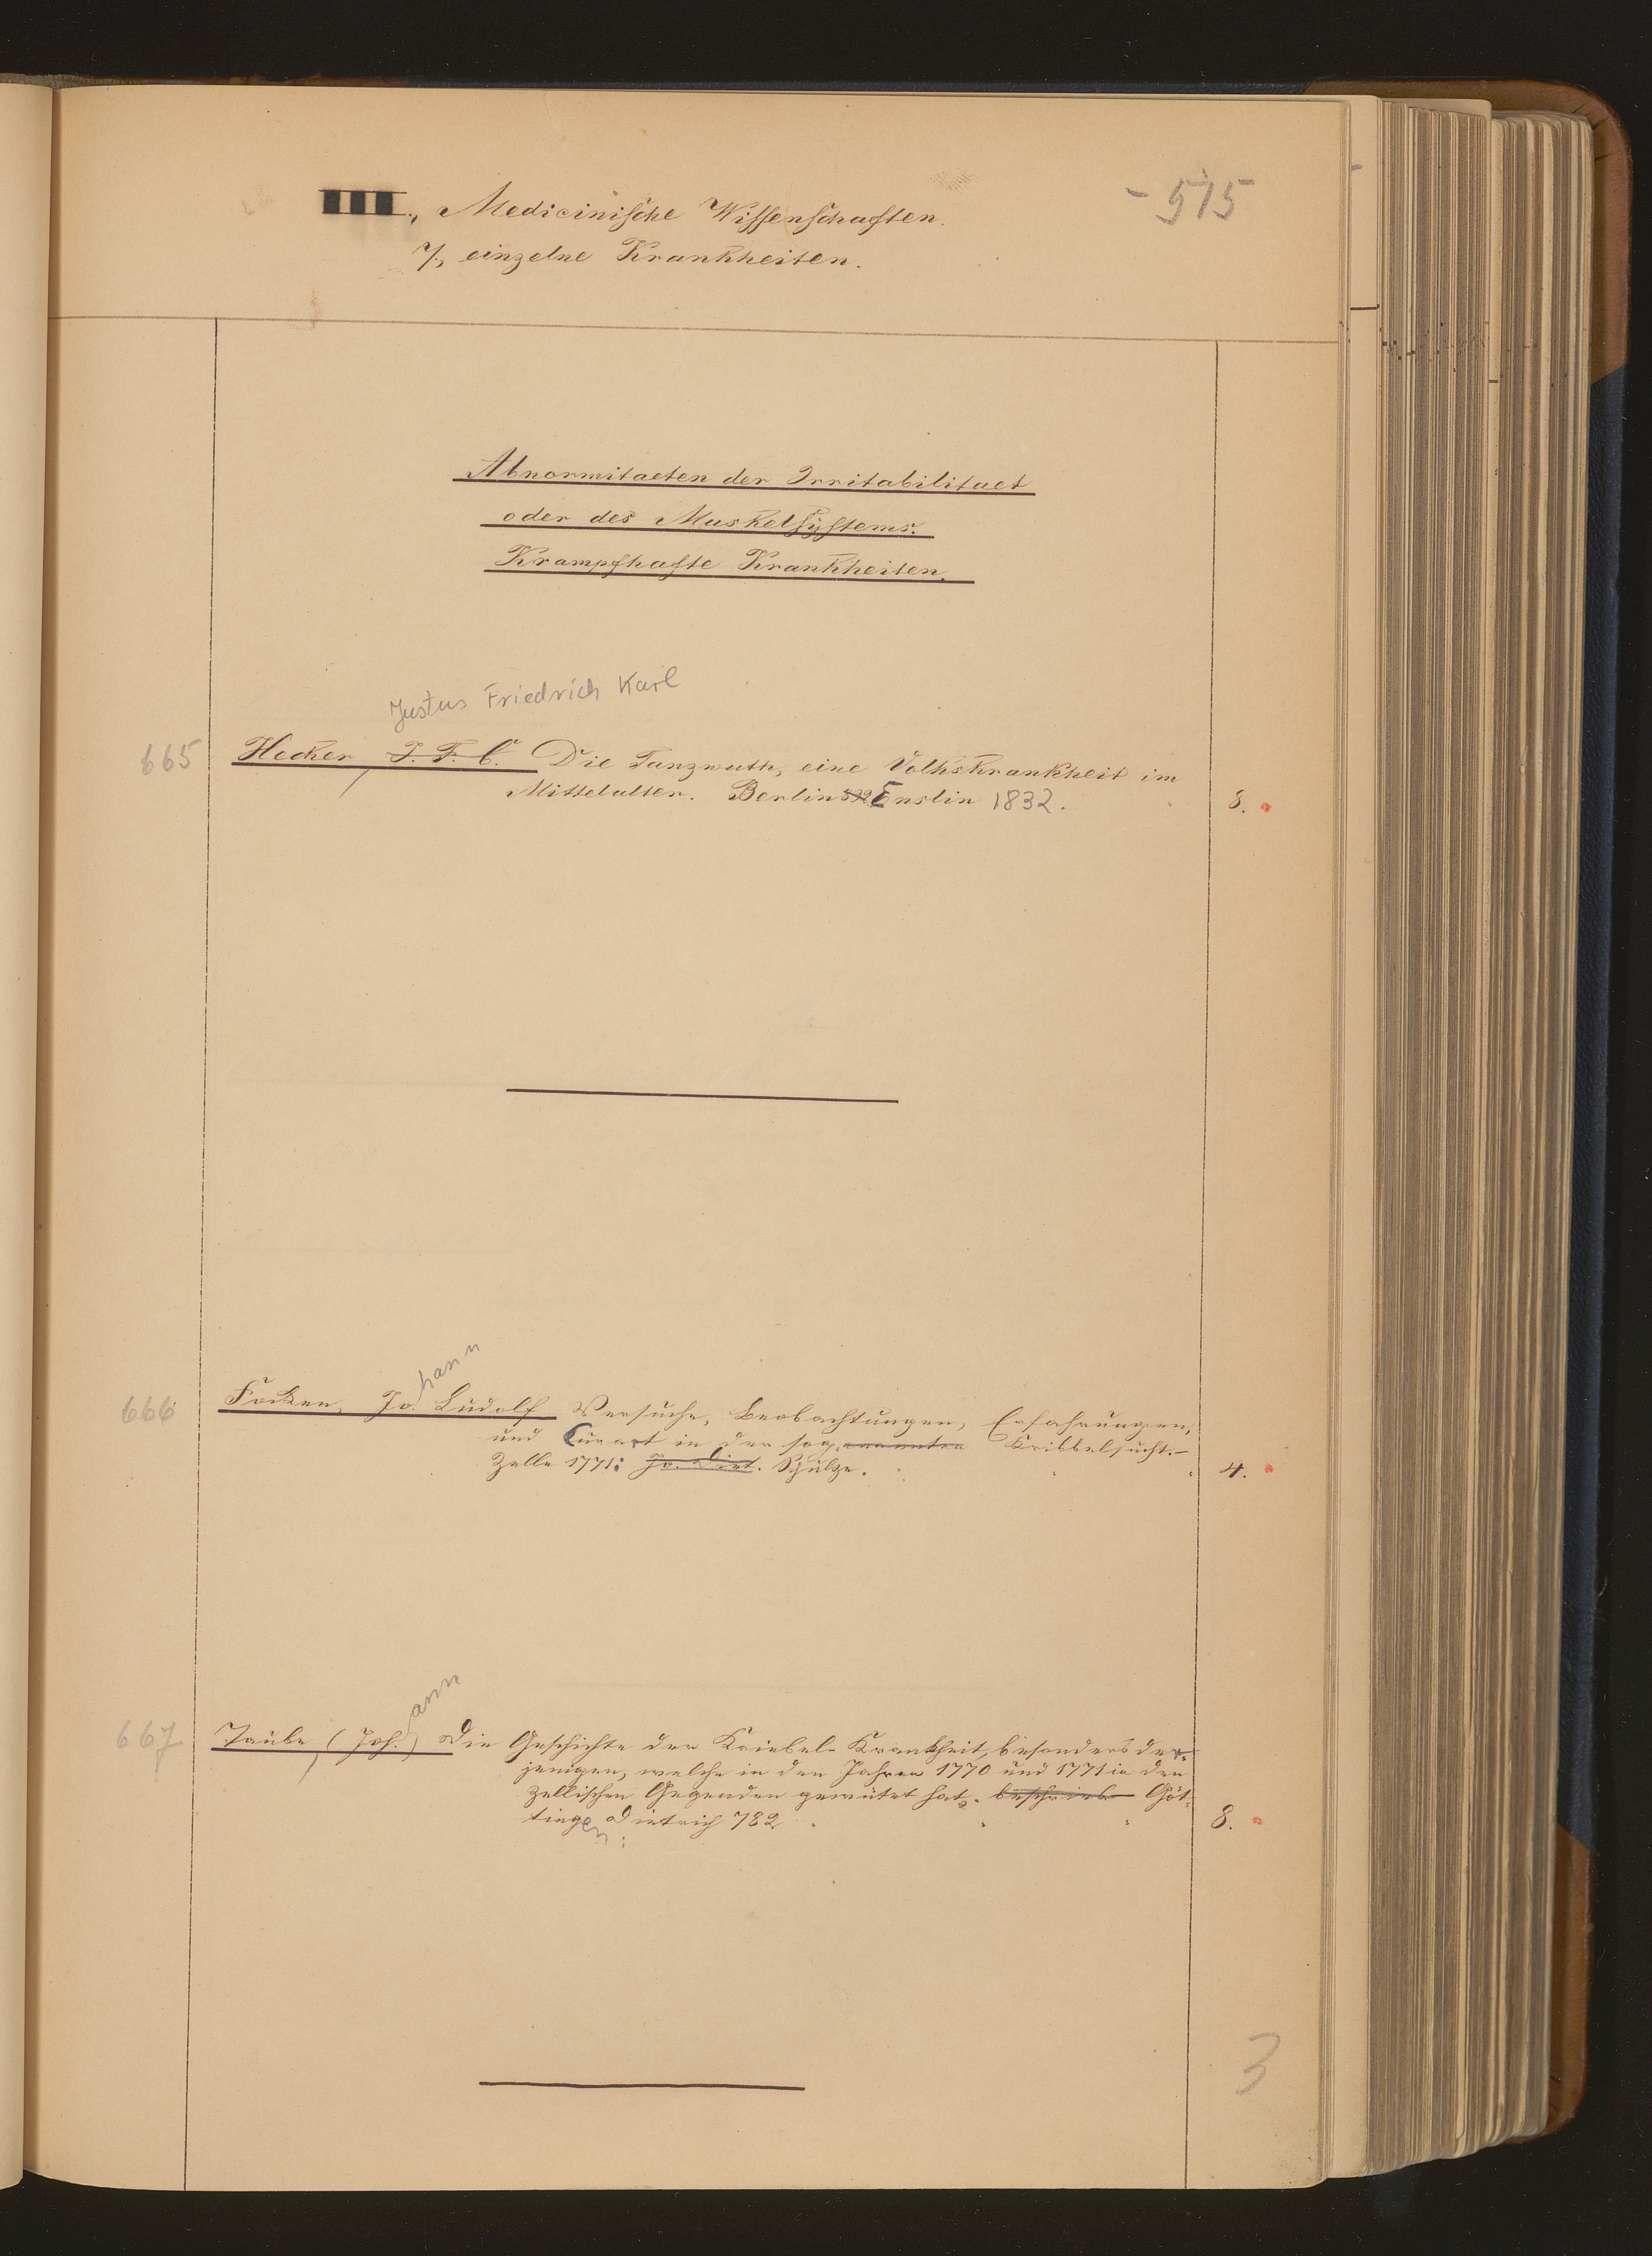 - 515 -
III., Medicinische Wissenschaften.
7., einzelne Krankheiten.
Abnormitaeten der Irritabilitaet
oder des Muskelsystems.
Krampfhafte Krankheiten.
Justus Friedrich Karl
665 Hecker, J. F. C. Die Tanzwuth, eine Volkskrankheit im
Mittelalter. Berlin Enslin 1832. 8.
hann
666 Focken, Jo. Ludolf Versuche, Beobachtungen, Erfahrungen,
und Curart in der sog. genannten Kribbelsucht.-
Zelle 1771: Jo. Diet. Schulze. 4.
ann
667 Taube, (Joh.) Die Geschichte der Kriebel-Krankheit, besonders der-
jenigen, welche in den Jahren 1770 und 1771 in den
zellischen Gegenden gewütet hat. beschrieb. Göt-
tingen: Dietrich 782 8.
3